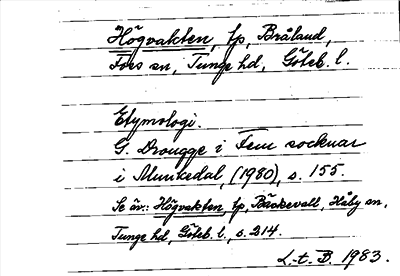 Högvakten, lp, Bråland,
Foss sn, Tunge hd, Göteb. l.
Etymologi.
G. Drougge i Fem socknar
i Munkedal, (1980), s. 155.
Se äv.: Högvakten lp, Bäckevall, Håby sn,
Tunge hd, Göteb. l., s. 214.
L.t. B. 1983.